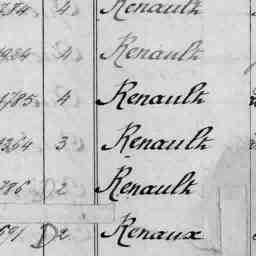 4 Renault
4 Renault
1785 4 Renault
1364 3 Renault
786 D 2 Renault
591 D 2 Renaux